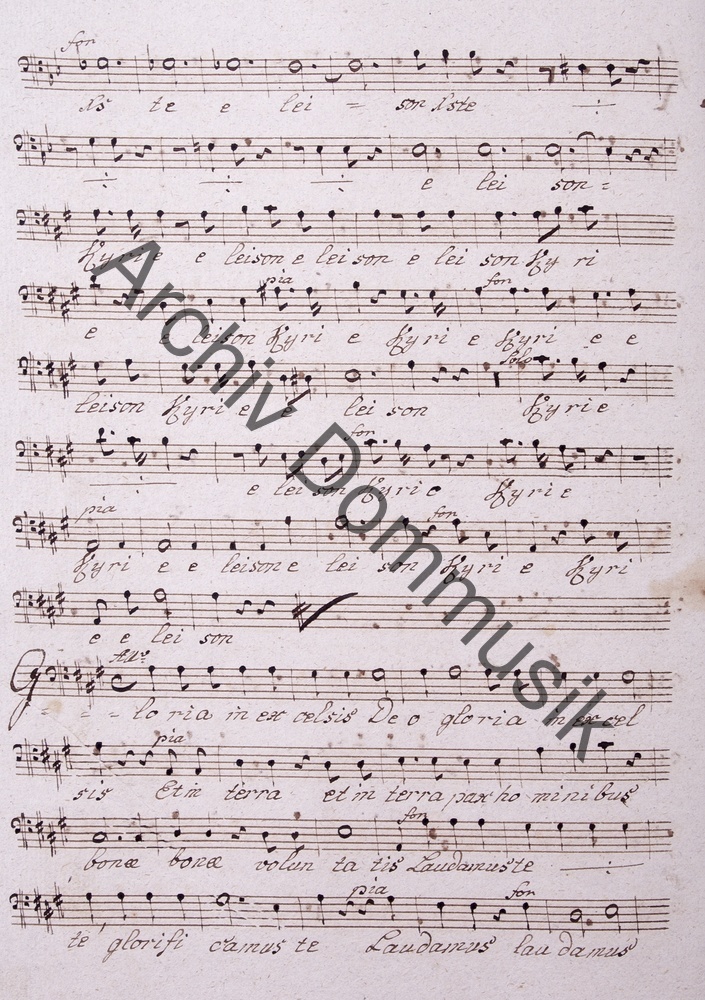 for
Xs te e lei = son Xste ÷
÷ ÷ ÷ e lei son =
Kyrie e leison e lei son e lei son Ky ri
pia for
e e leison Kyri e Kyri e Kyri e e
Solo
leison Kyri e e lei son Kyrie
for
÷ e lei son Kyrie Kyrie
pia for
Kyri e e leison e lei son Kyri e Kyri
e e lei son
All:º
G = = = loria in excelsis Deo gloria in excel
pia
sis Et in terra et in terra pax hominibus
for
bonæ bonæ volun ta tis Laudamuste ÷
pia for
te glorifi camus te Laudamus lau damus
Archiv Dommusik